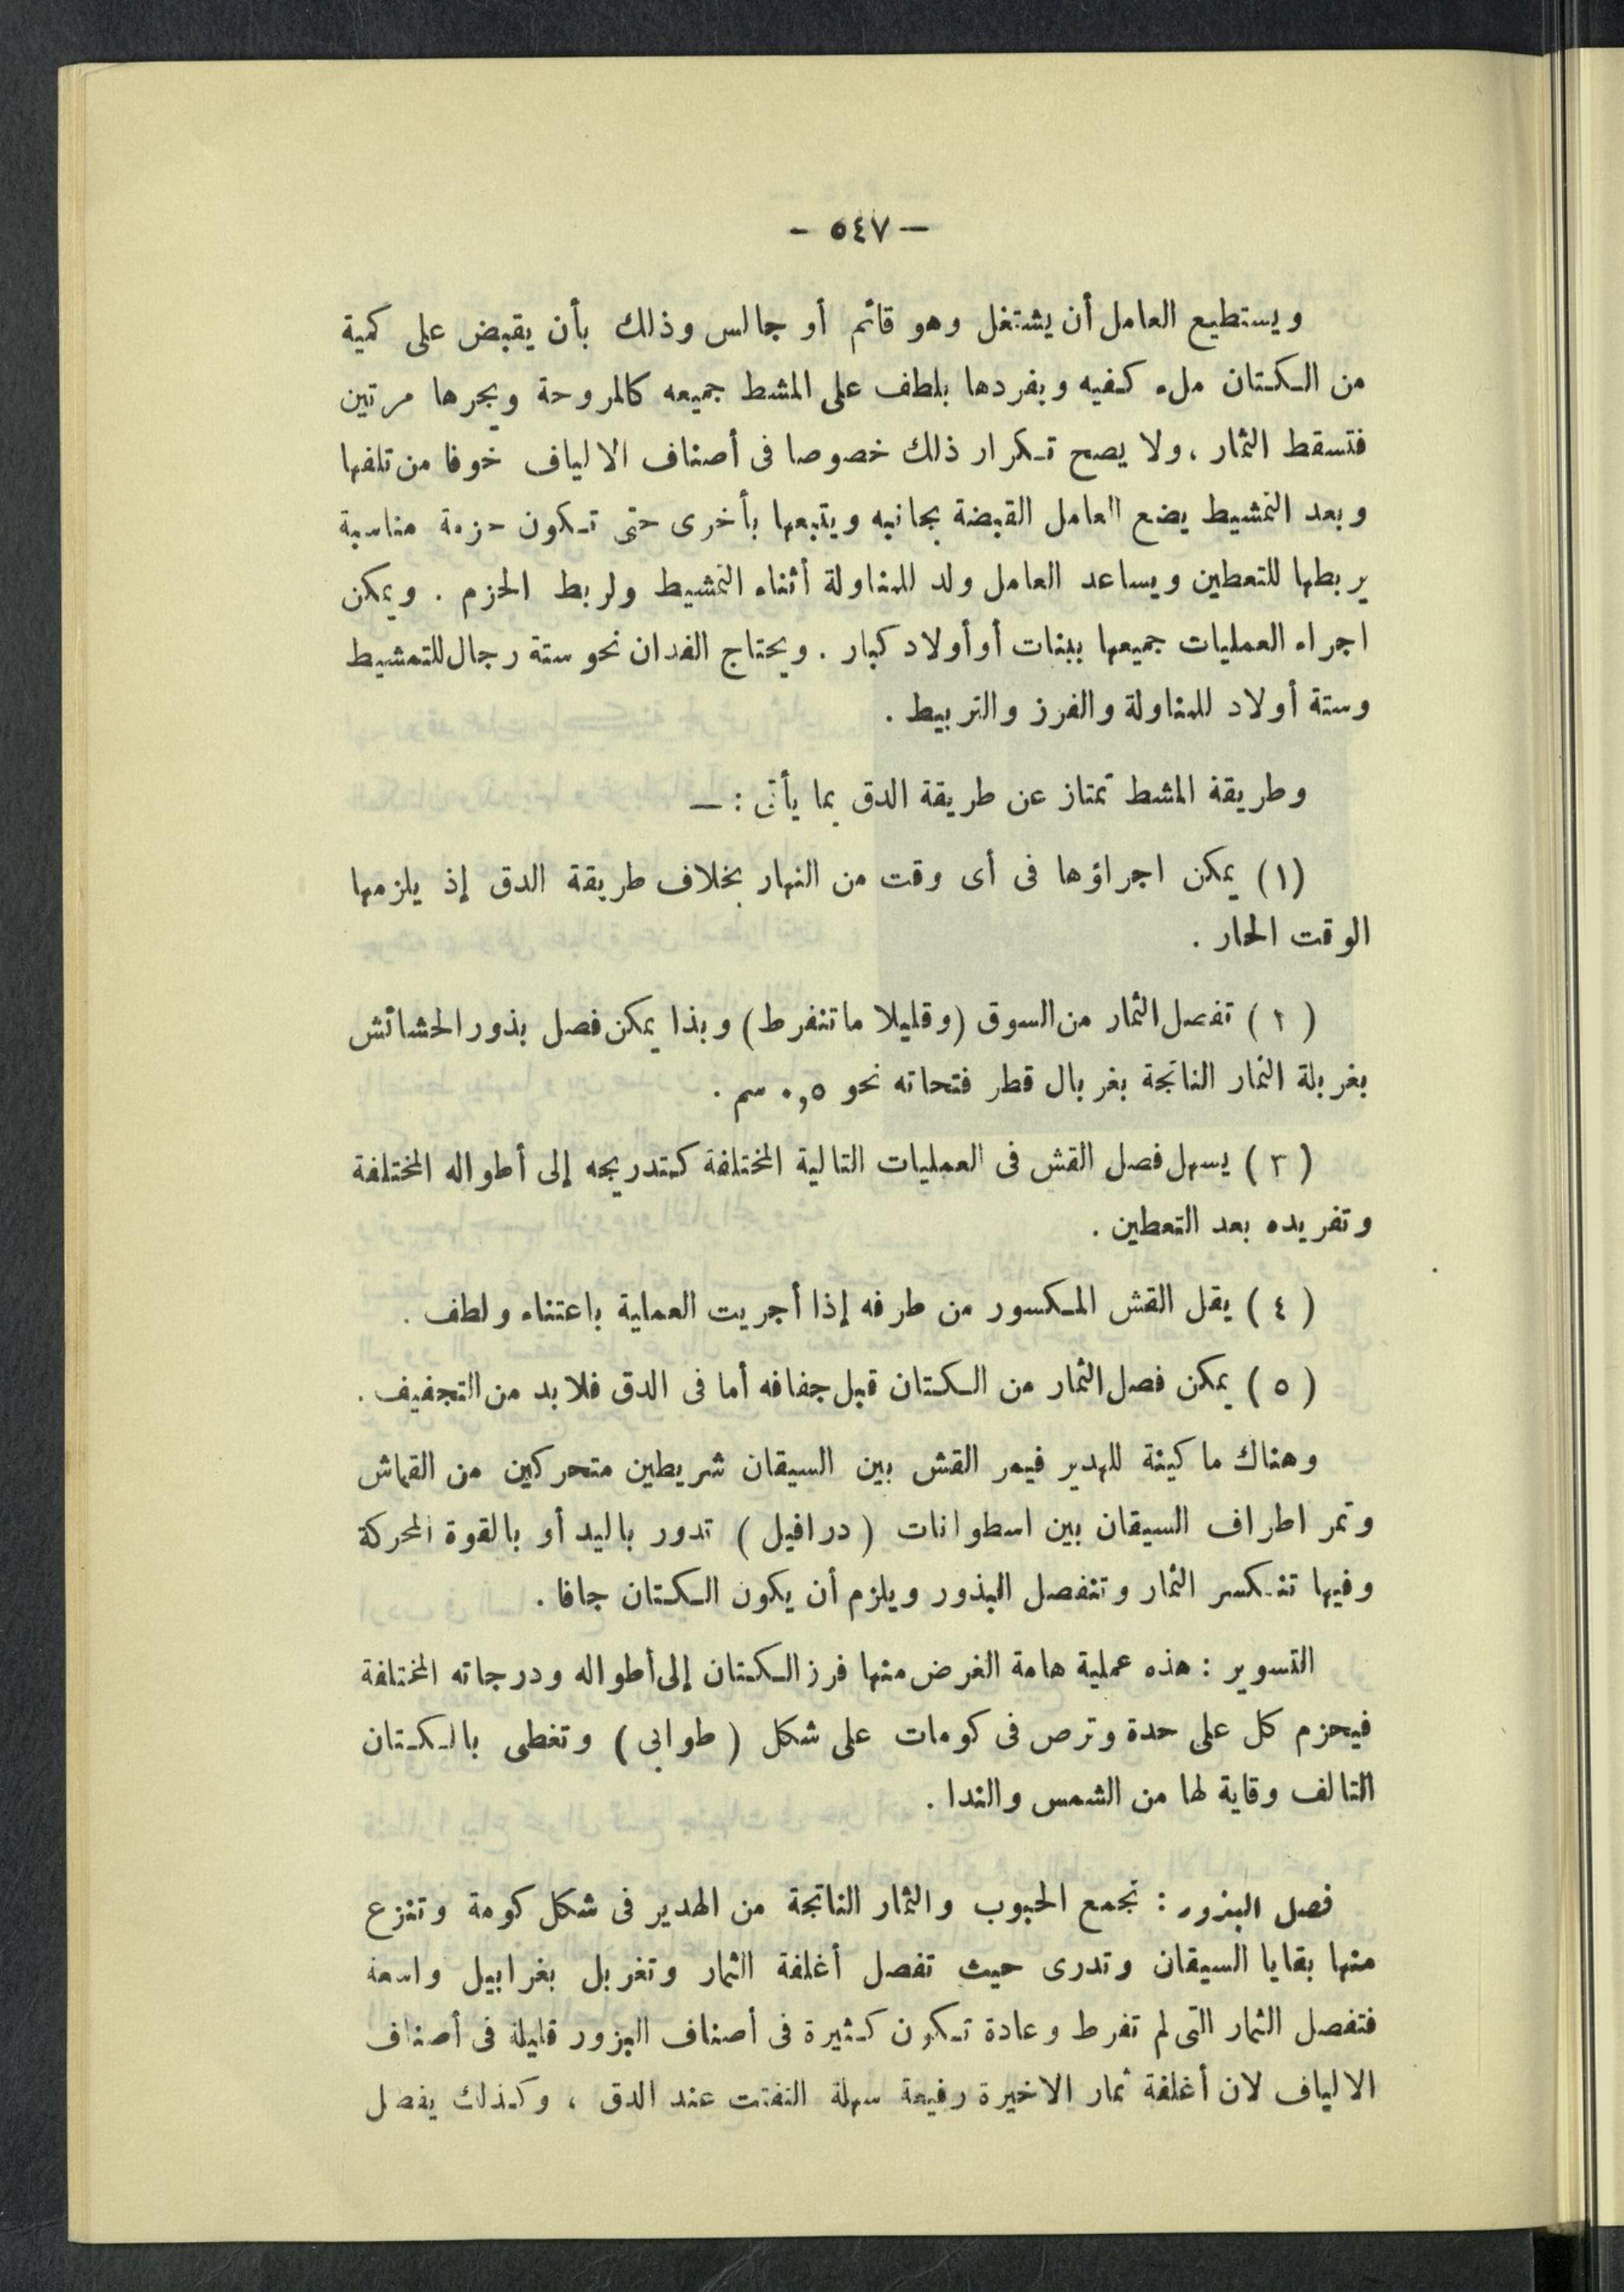 — ٥٤٧ —
ويستطيع العامل أن يشتغل وهو قائم أو جالس وذلك بأن يقبض على كمية
من الكتان ملء كفيه ويفردها بلطف على المشط جميعه كالمروحة ويجرها مرتين
فتسقط الثمار ، ولا يصح تكرار ذلك خصوصا فى أصناف الالياف خوفا من تلفها
وبعد التمشيط يضع العامل القبضة بجانبه ويتبعها بأخرى حتى تكون حزمة مناسبة
يربطها للتعطين ويساعد العامل ولد للمناولة أثناء التمشيط ولربط الحزم . ويمكن
اجراء العمليات جميعها ببنات أو أولاد كبار . ويحتاج الفدان نحو ستة رجال للتمشيط
وستة أولاد للمناولة والفرز والتربيط .
وطريقة المشط تمتاز عن طريقة الدق بما يأتى : —
(١) يمكن اجراؤها فى أى وقت من النهار بخلاف طريقة الدق إذ يلزمها
الوقت الحار .
( ٢ ) تفصل الثمار من السوق (وقليلا ما تنفرط) وبذا يمكن فصل بذور الحشائش
بغربلة الثمار الناتجة بغربال قطر فتحاته نحو ٠,٥ سم .
( ٣ ) يسهل فصل القش فى العمليات التالية المختلفة كتدريجه إلى أطواله المختلفة
وتفريده بعد التعطين .
( ٤ ) يقل القش المكسور من طرفه إذا أجريت العملية باعتناء ولطف .
( ٥ ) يمكن فصل الثمار من الكتان قبل جفافه أما فى الدق فلابد من التجفيف .
وهناك ماكينة للهدير فيمر القش بين السيقان شريطين متحركين من القماش
وتمر اطراف السيقان بين اسطوانات ( درافيل ) تدور باليد أو بالقوة المحركة
وفيها تنكسر الثمار وتنفصل البذور ويلزم أن يكون الكتان جافا .
التسوير : هذه عملية هامة الغرض منها فرز الكتان إلى أطواله ودرجاته المختلفة
فيحزم كل على حدة وترص فى كومات على شكل ( طوابى ) وتغطى بالكتان
التالف وقاية لها من الشمس والندا .
فصل البذور : تجمع الحبوب والثمار الناتجة من الهدير فى شكل كومة وتنزع
منها بقايا السيقان وتدرى حيث تفصل أغلفة الثمار وتغربل بغرابيل واسعة
فتفصل الثمار التى لم تفرط وعادة تكون كثيرة فى أصناف البزور قليلة فى أصناف
الالياف لان أغلفة ثمار الاخيرة رفيعة سهلة التفتت عند الدق ، وكذلك يفصل